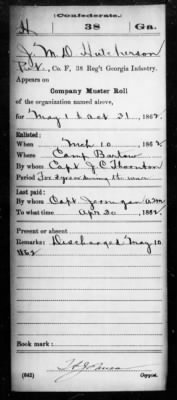 (Confederate.)
H 38 Ga.
J. M. D. Hutcherson
Pvt, Co. F, 38 Reg't Georgia Infantry.
Appears on
Company Muster Roll
of the organization named above,
for May 1 to Oct 31, 1862
Enlisted:
When Mch 10, 1862
Where Camp Bartow
By whom Capt J. C. Thornton
Period For 3 years during the war
Last paid:
By whom Capt
To what time Apr 30, 1862.
Present or absent
Remarks: Discharged May 10
1862
Book mark:
(642) Copyist.